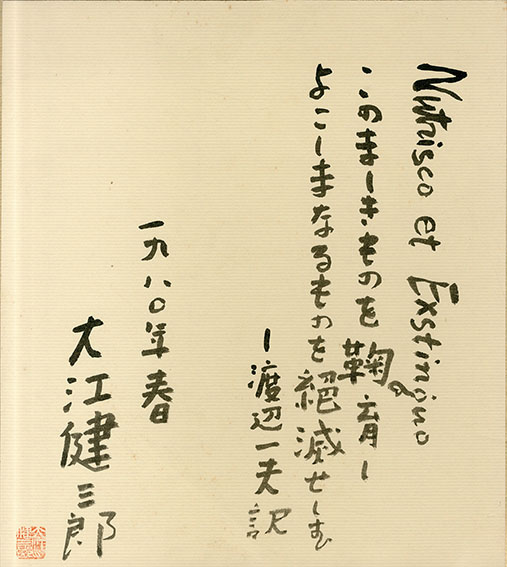 Nutrisco et Exstinguo
このましきものを鞠育し
よこしまなるものを絶滅せしむ
ー渡辺一夫訳
一九八〇年春
大江健三郎